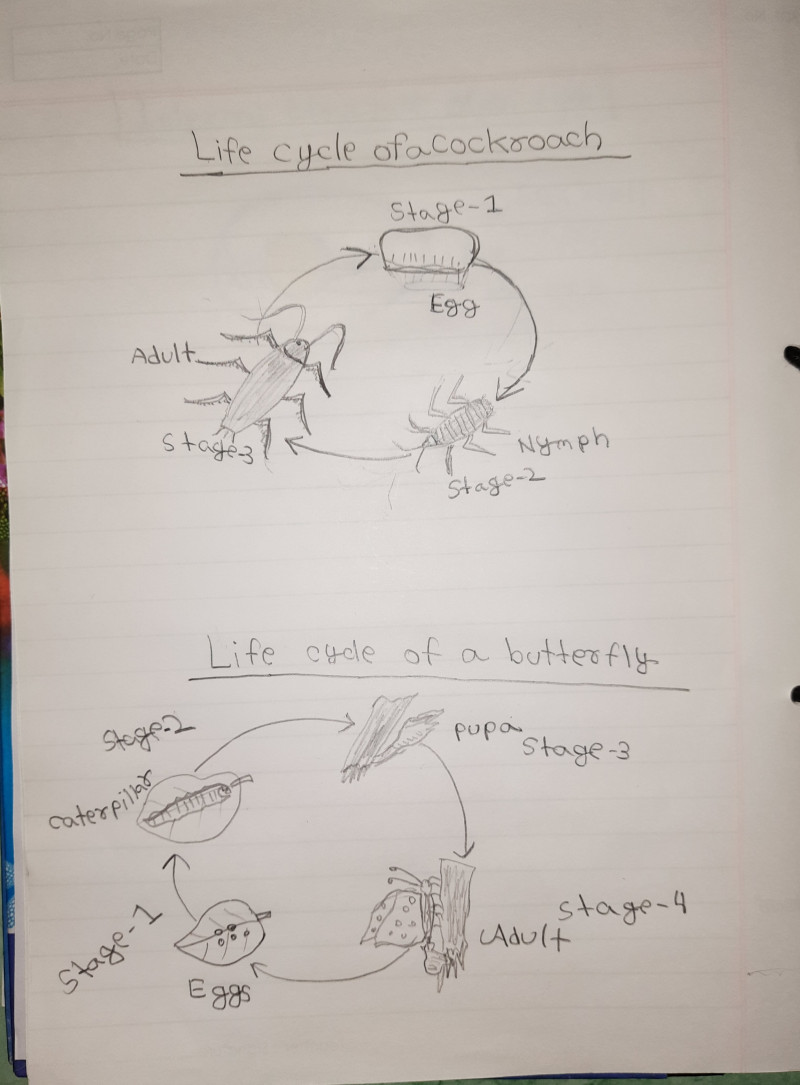 Life cycle of a cockroach
Stage-1
Egg
Adult
Stage-3
Nymph
Stage-2
Life cycle of a butterfly
Stage-2
caterpillar
pupa
Stage-3
Stage-1
Eggs
Adult
Stage-4